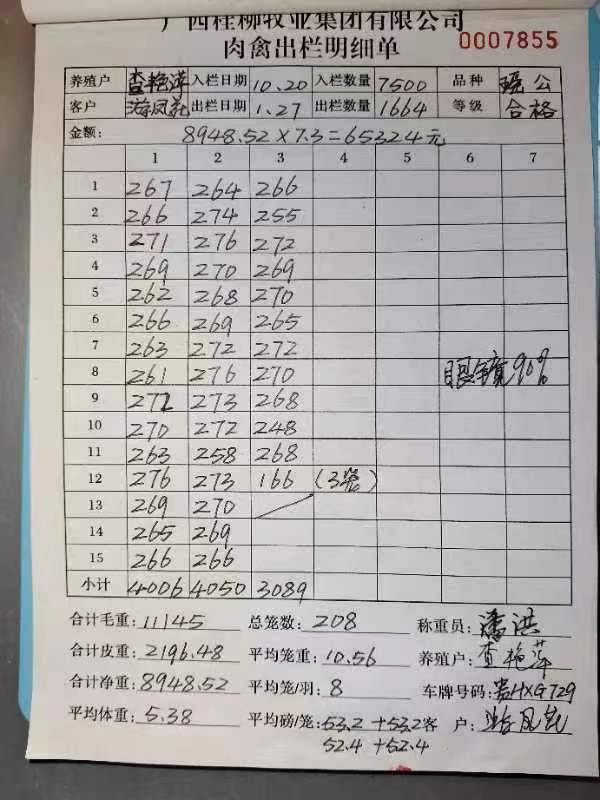 广西桂柳牧业集团有限公司
肉禽出栏明细单 0007855
养殖户 查艳萍 入栏日期 10.20 入栏数量 7500 品种 瑶公
客户 游凤花 出栏日期 1.27 出栏数量 1664 等级 合格
金额: 8948.52×7.3=65324元
1 2 3 4 5 6 7
1 267 264 266
2 266 274 255
3 271 276 272
4 269 270 269
5 262 268 270
6 266 269 265
7 263 272 272
8 261 276 270 眼镜90%
9 272 273 268
10 270 272 248
11 263 258 268
12 276 273 166 (3笼)
13 269 270
14 265 269
15 266 266
小计 4006 4050 3089
合计毛重: 11145 总笼数: 208 称重员: 潘洪
合计皮重: 2196.48 平均笼重: 10.56 养殖户: 查艳萍
合计净重: 8948.52 平均笼/羽: 8 车牌号码: 贵HXG729
平均体重: 5.38 平均磅/笼: 53.2+53.2 客户: 游凤花
52.4+52.4